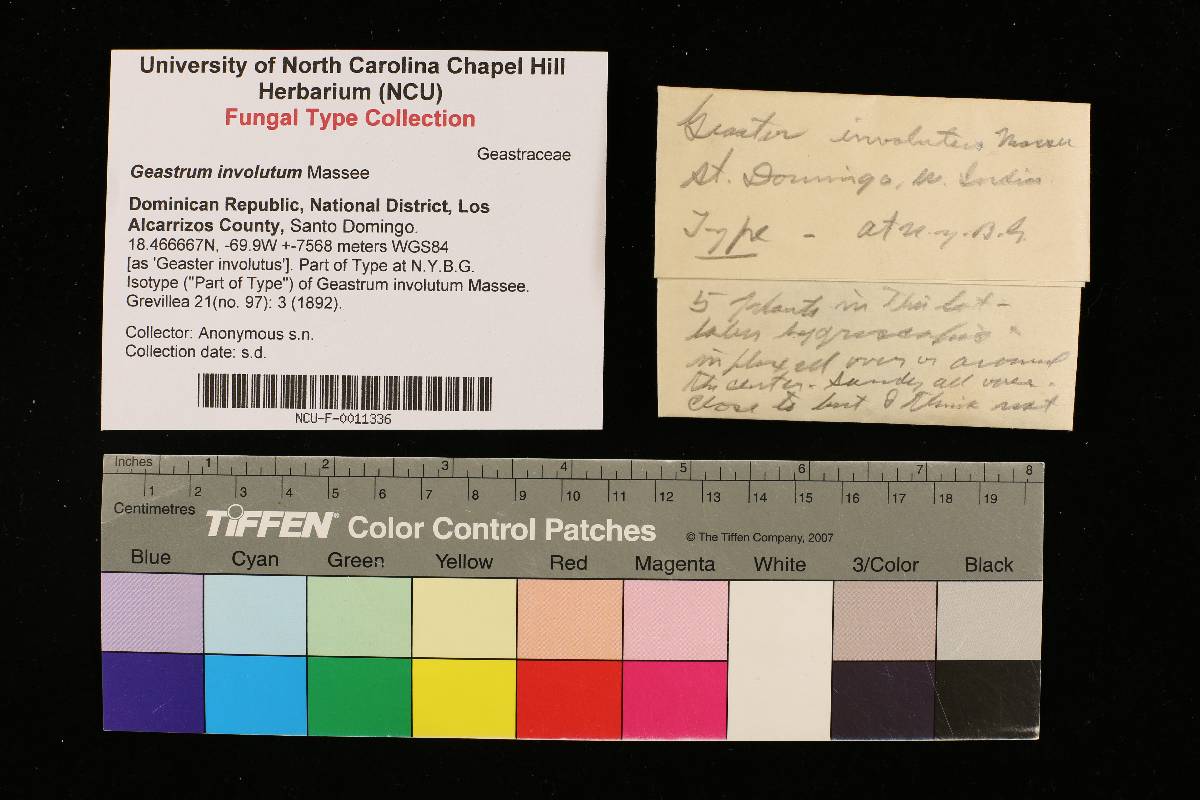 University of North Carolina Chapel Hill
Herbarium (NCU)
Fungal Type Collection
Geastraceae
Geastrum involutum Massee
Dominican Republic, National District, Los
Alcarrizos County, Santo Domingo.
18.466667N, -69.9W +-7568 meters WGS84
[as 'Geaster involutus']. Part of Type at N.Y.B.G.
Isotype ("Part of Type") of Geastrum involutum Massee.
Grevillea 21(no. 97): 3 (1892).
Collector: Anonymous s.n.
Collection date: s.d.
NCU-F-0011336
Geaster involutus Massee
St. Domingo, W. Indies
Type - at N.Y.B.G.
5 plants in this lot -
in
over or around
the center. Sandy all over.
Close to but I think not
Inches 1 2 3 4 5 6 7 8
1 2 3 4 5 6 7 8 9 10 11 12 13 14 15 16 17 18 19
Centimetres
TIFFEN® Color Control Patches © The Tiffen Company, 2007
Blue Cyan Green Yellow Red Magenta White 3/Color Black